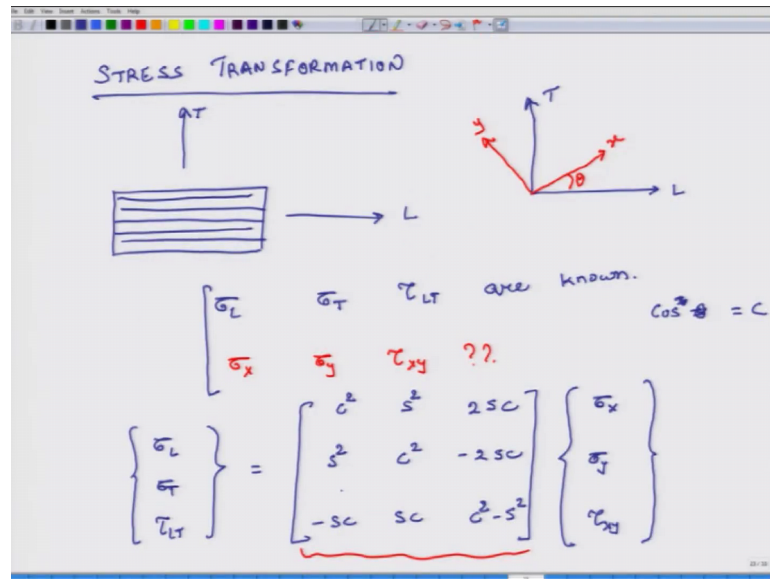 File Edit View Insert Actions Tools Help
STRESS TRANSFORMATION
T
L
y
T
x
θ
L
σL σT τLT are known.
cos θ = C
σx σy τxy ??
{ σL σT τLT } = [ c² s² 2sc
s² c² -2sc
-sc sc c²-s² ] { σx σy τxy }